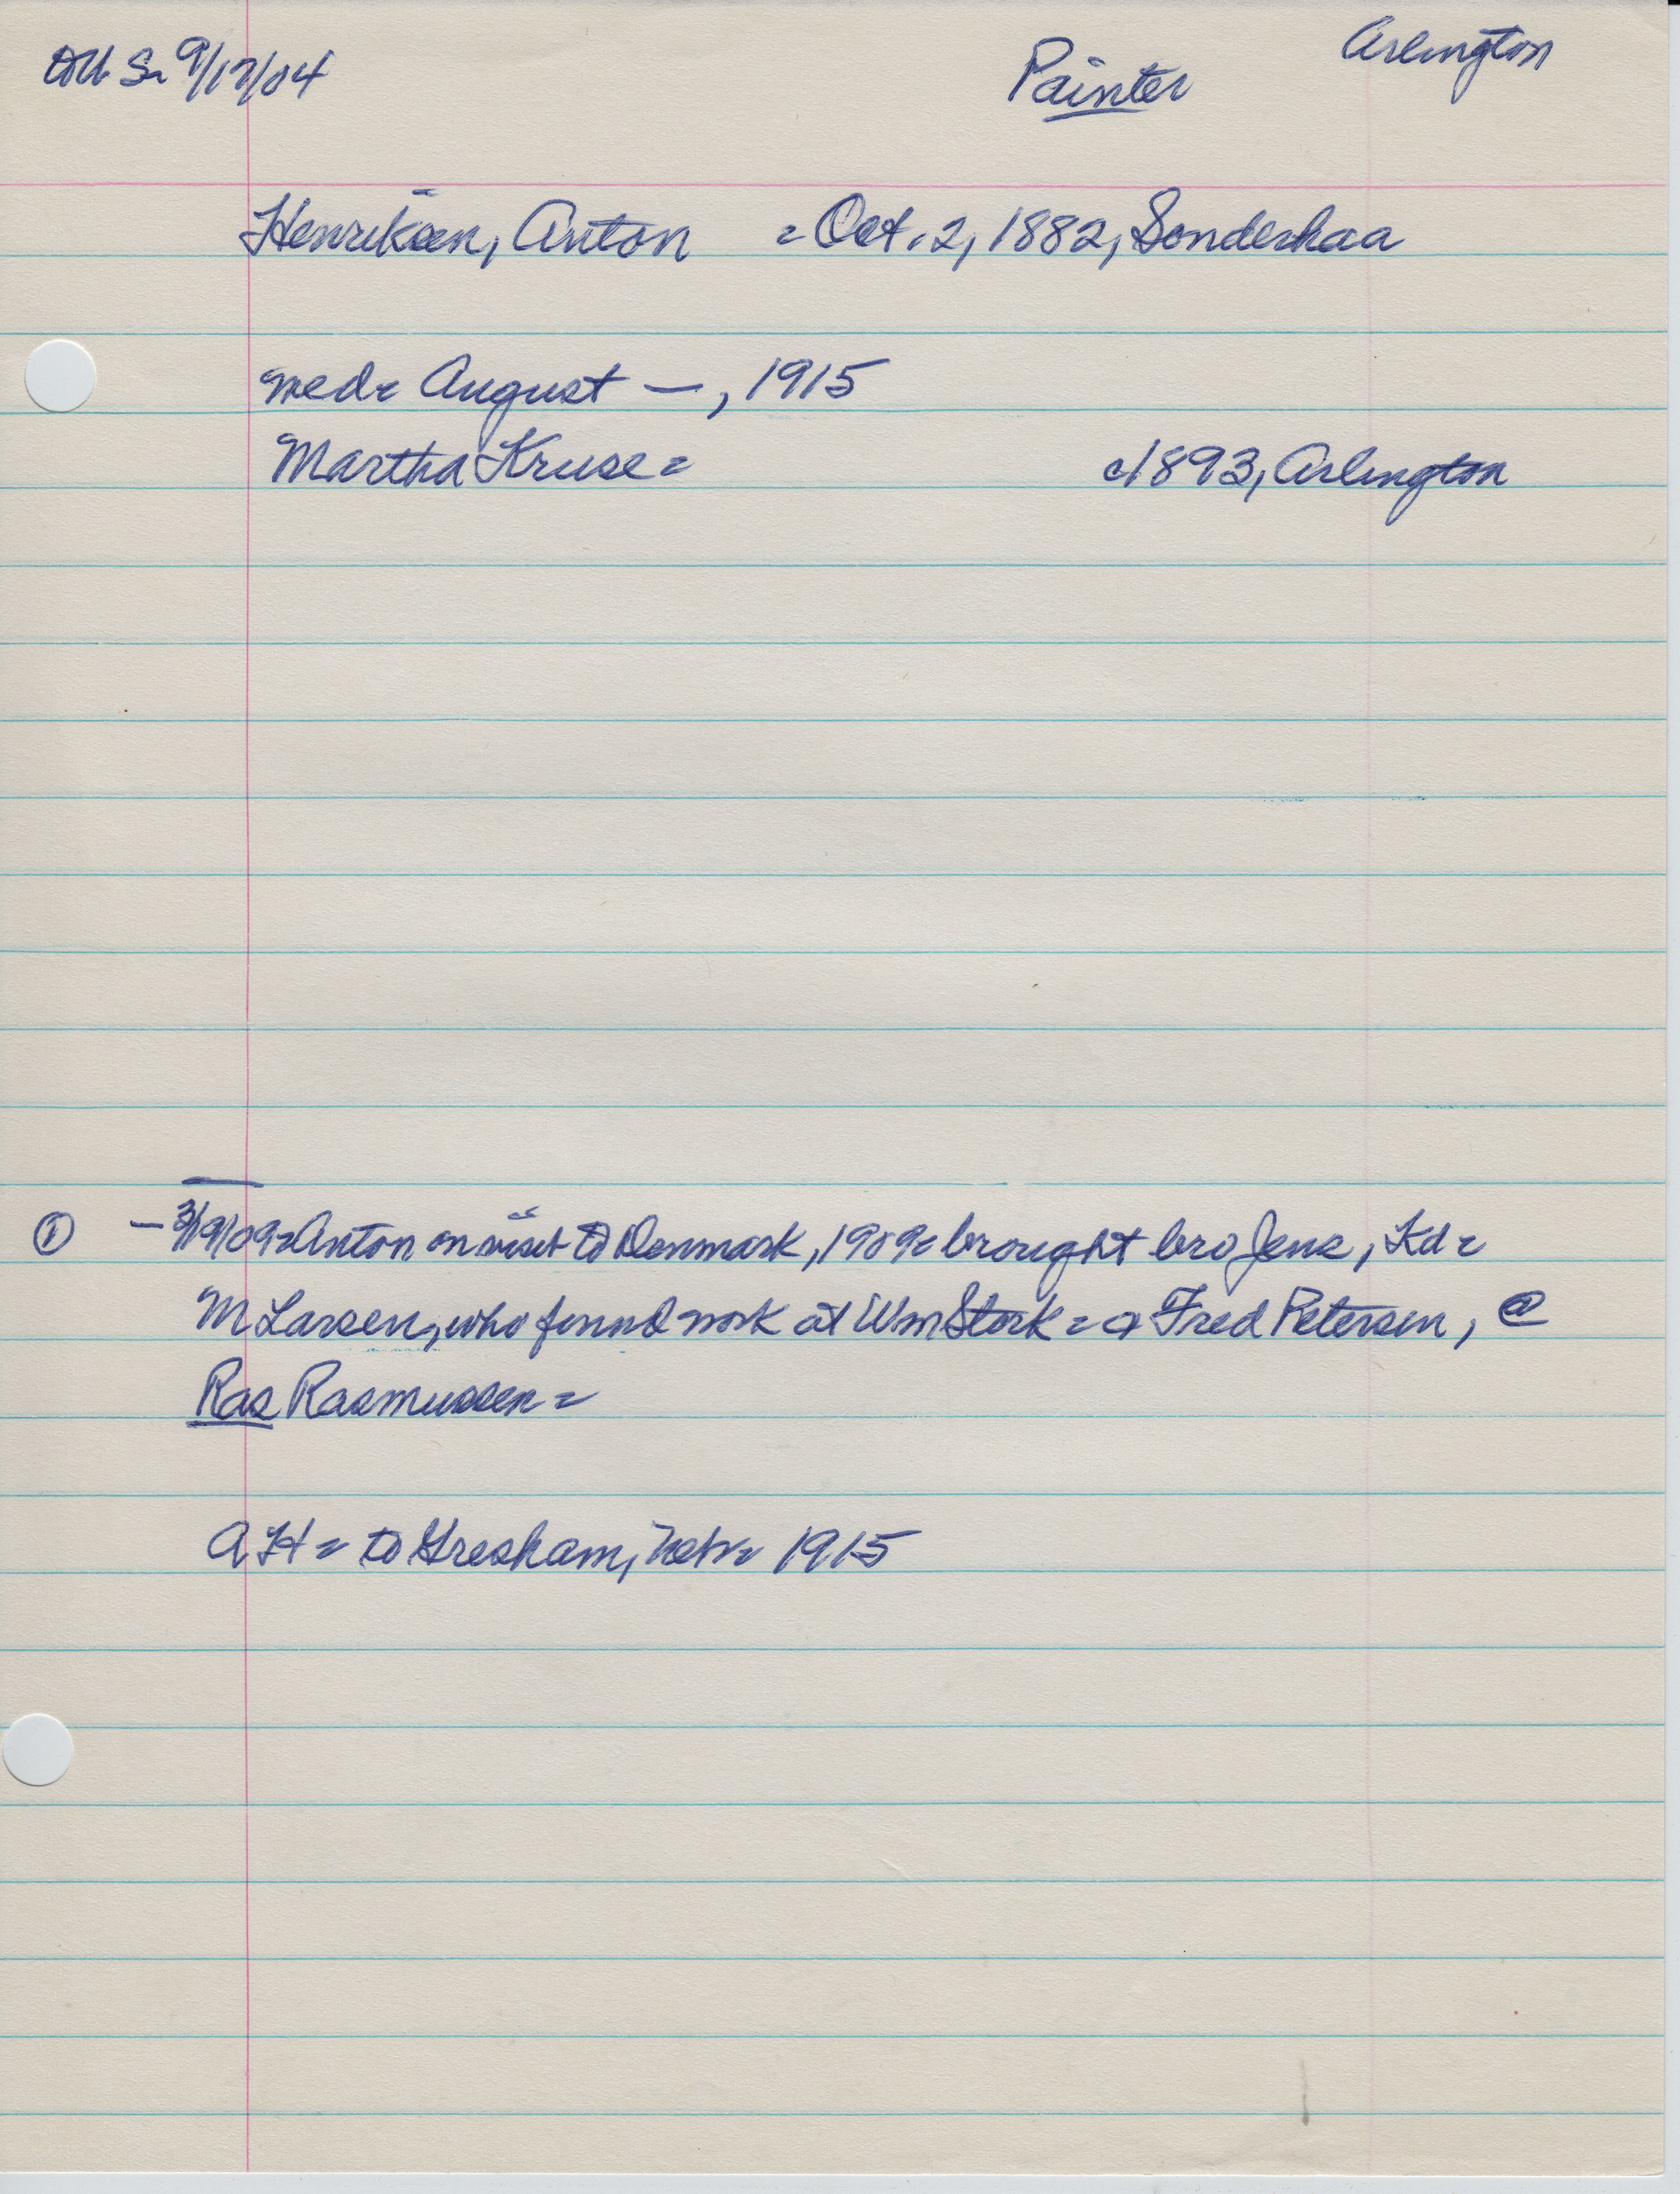 9/17/04
Painter
Arlington
Henriksen, Anton = Oct. 2, 1882, Sonderhaa
med= August —, 1915
Martha Kruse =
c1893, Arlington
① — 3/19/09= Anton on visit to Denmark, 1909= brought bro Jens, Kd=
M Larsen, who found work at Wm Stork = Fred Petersen, @
Ras Rasmussen =
AH = to Gresham, Neb= 1915